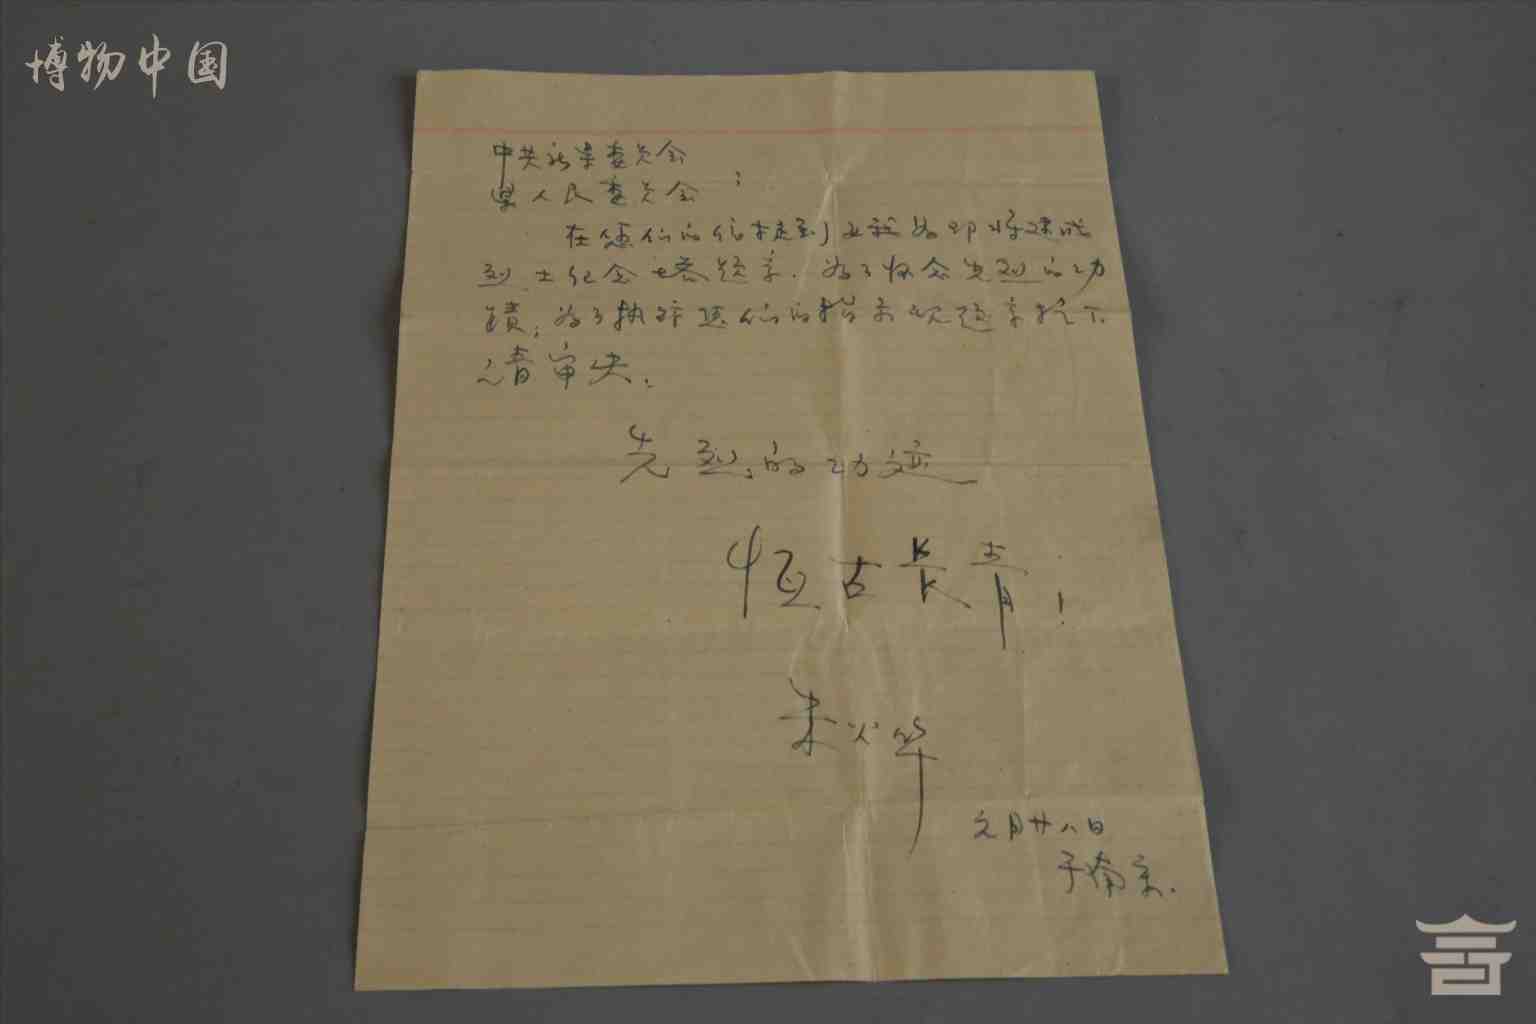 博物中国
中共新县委员会
县人民委员会:
在您们的信中提到,要我为即将建成
烈士纪念塔题字.为了怀念先烈的功
绩,为了执行您们的指示现题字于下
请审夬.
先烈的功迹
恒古长青!
朱火华
元月廿八日
于南京.